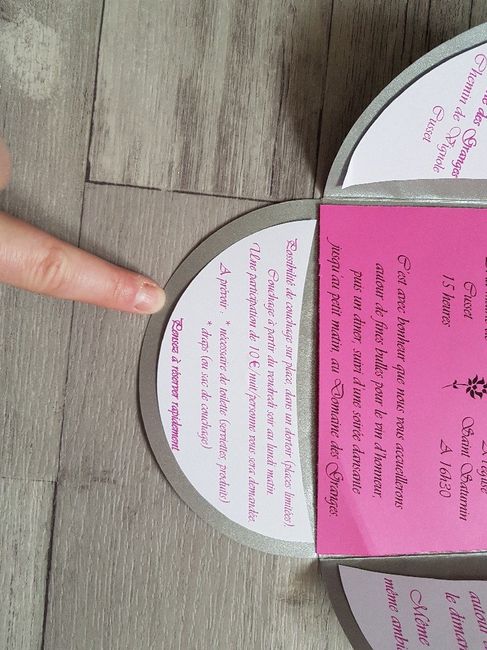 des Granges
Chemin de Vignole
Cusset
Cusset
15 heures
Saint Saturnin
A 16h30
C'est avec bonheur que nous vous accueillerons
autour de fines bulles pour le vin d'honneur,
puis un dîner, suivi d'une soirée dansante
jusqu'au petit matin, au Domaine des Granges.
Possibilité de couchage sur place, dans un dortoir (places limitées).
Couchage à partir du vendredi soir au lundi matin.
Une participation de 10 €/nuit/personne vous sera demandée.
A prévoir : * nécessaire de toilette (serviettes produits)
* draps (ou sac de couchage)
Pensez à réserver rapidement
autour
le diman
Même
même ambi